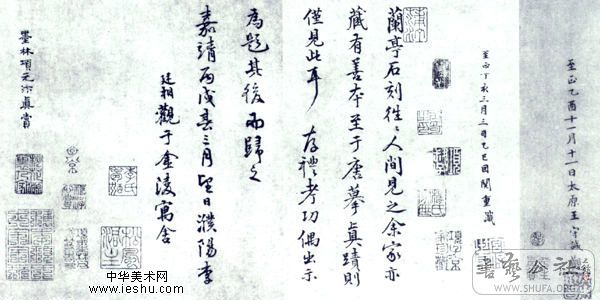 至正乙酉十一月十一日太原王守誠
至正丁亥三月三日乙巳因閱重識
蘭亭石刻往〻人間見之余家亦
藏有善本至于唐摹真蹟則
僅見此耳存禮考功偶出示
為題其後而歸之
嘉靖丙戌春三月望日濮陽李
廷相觀于金陵寓舍
墨林項元汴真賞
中华美术网
www.ieshu.com
书艺公社
WWW.SHUFA.ORG